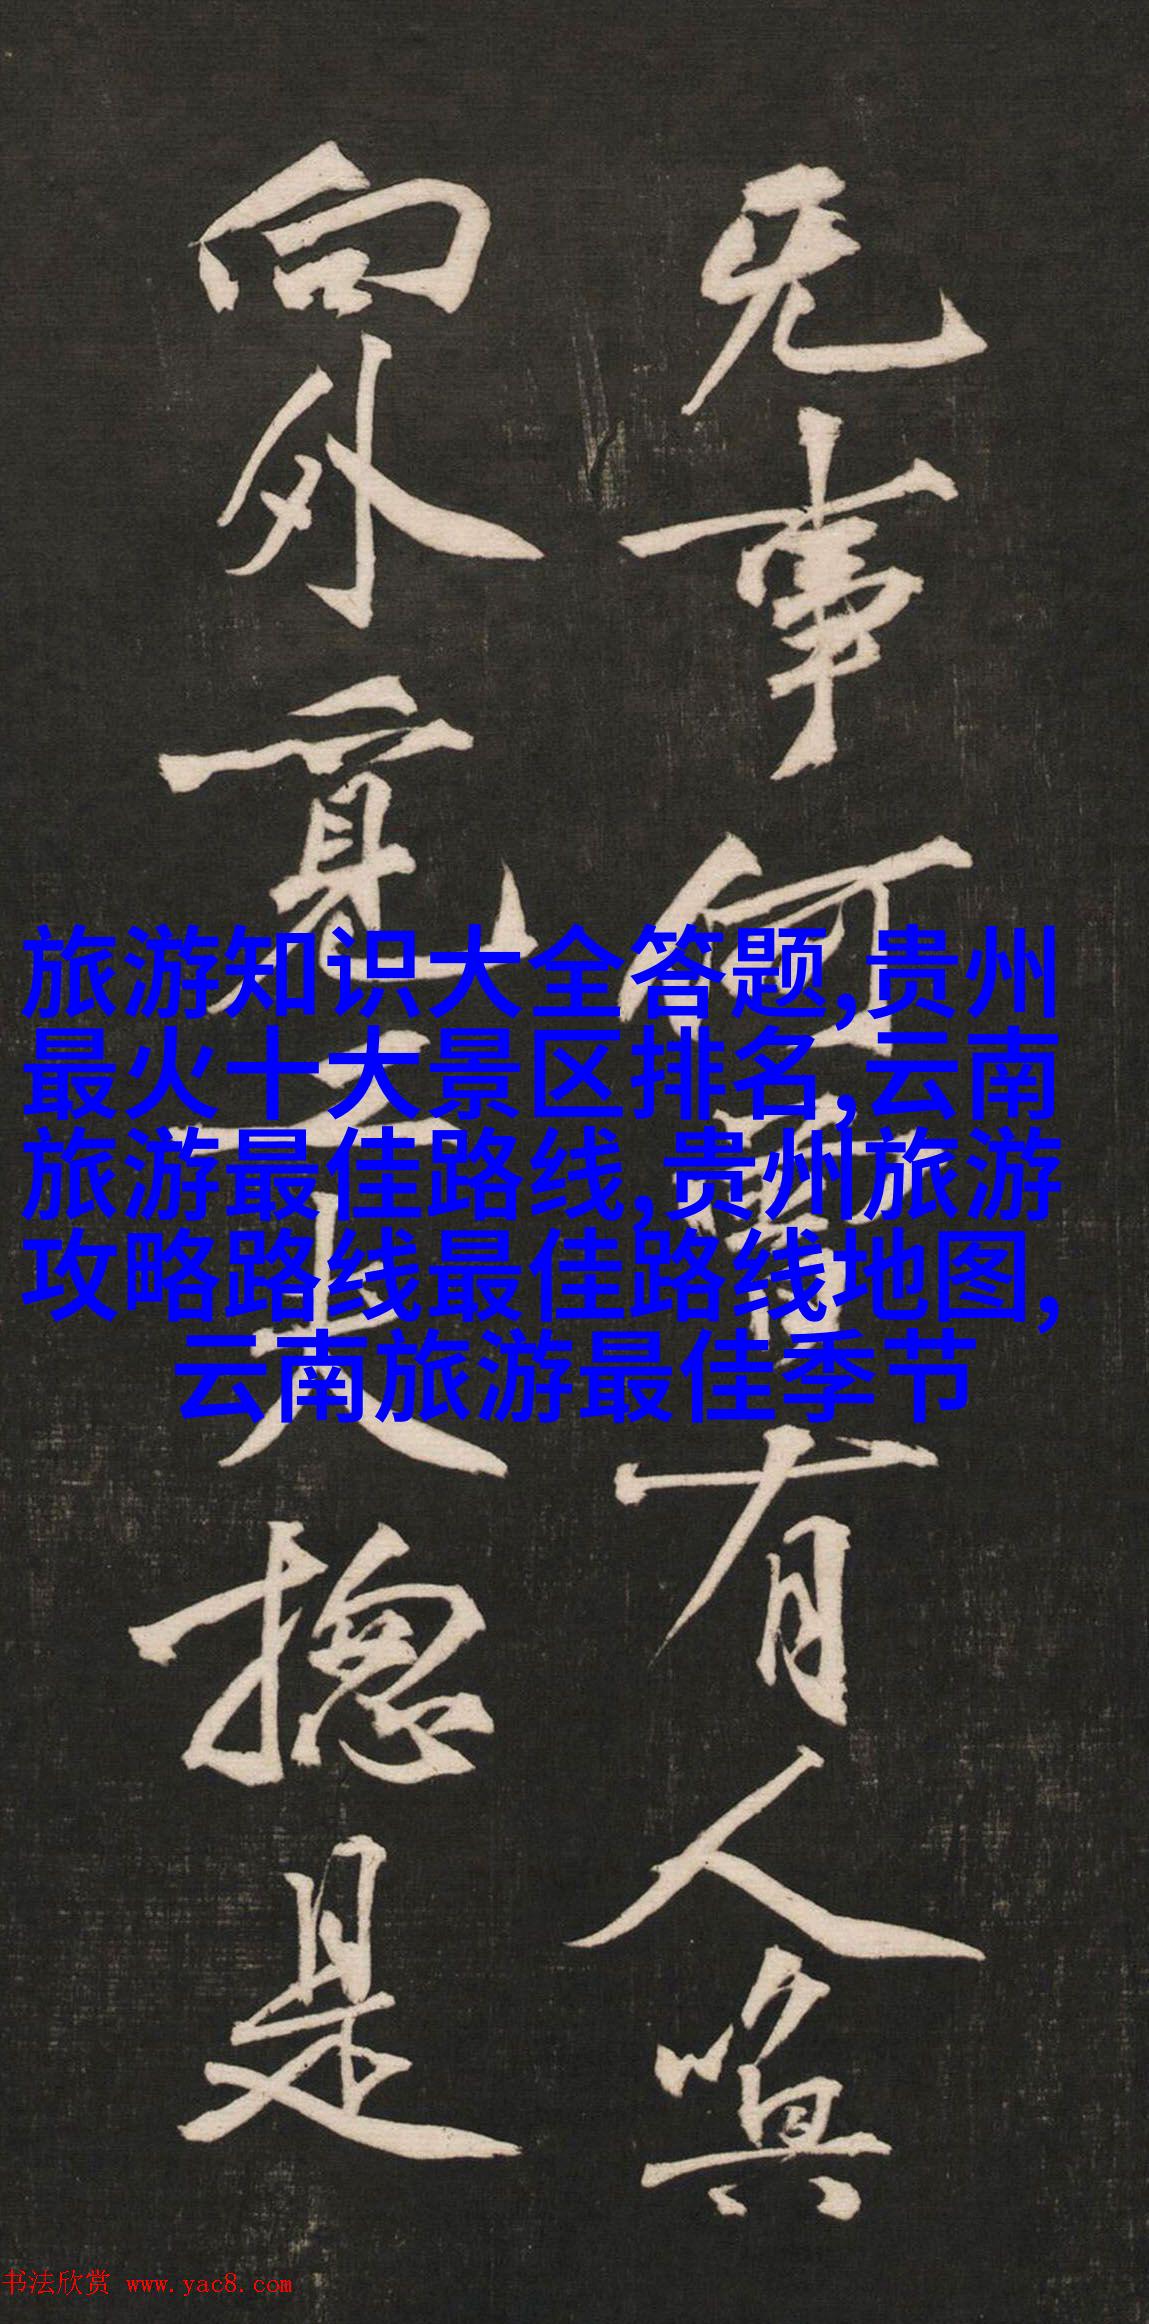 无事何有人喚
向外覔工夫揔是
旅游知识大全答题,贵州
最火十大景区排名,云南
旅游最佳路线,贵州旅游
攻略路线最佳路线地图,
云南旅游最佳季节
书法欣赏 www.yac8.com